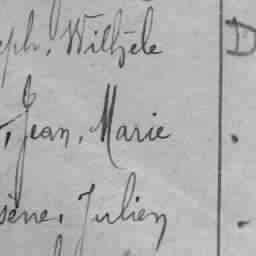 eph, Wilhèle D
, Jean, Marie .
sène, Julien -